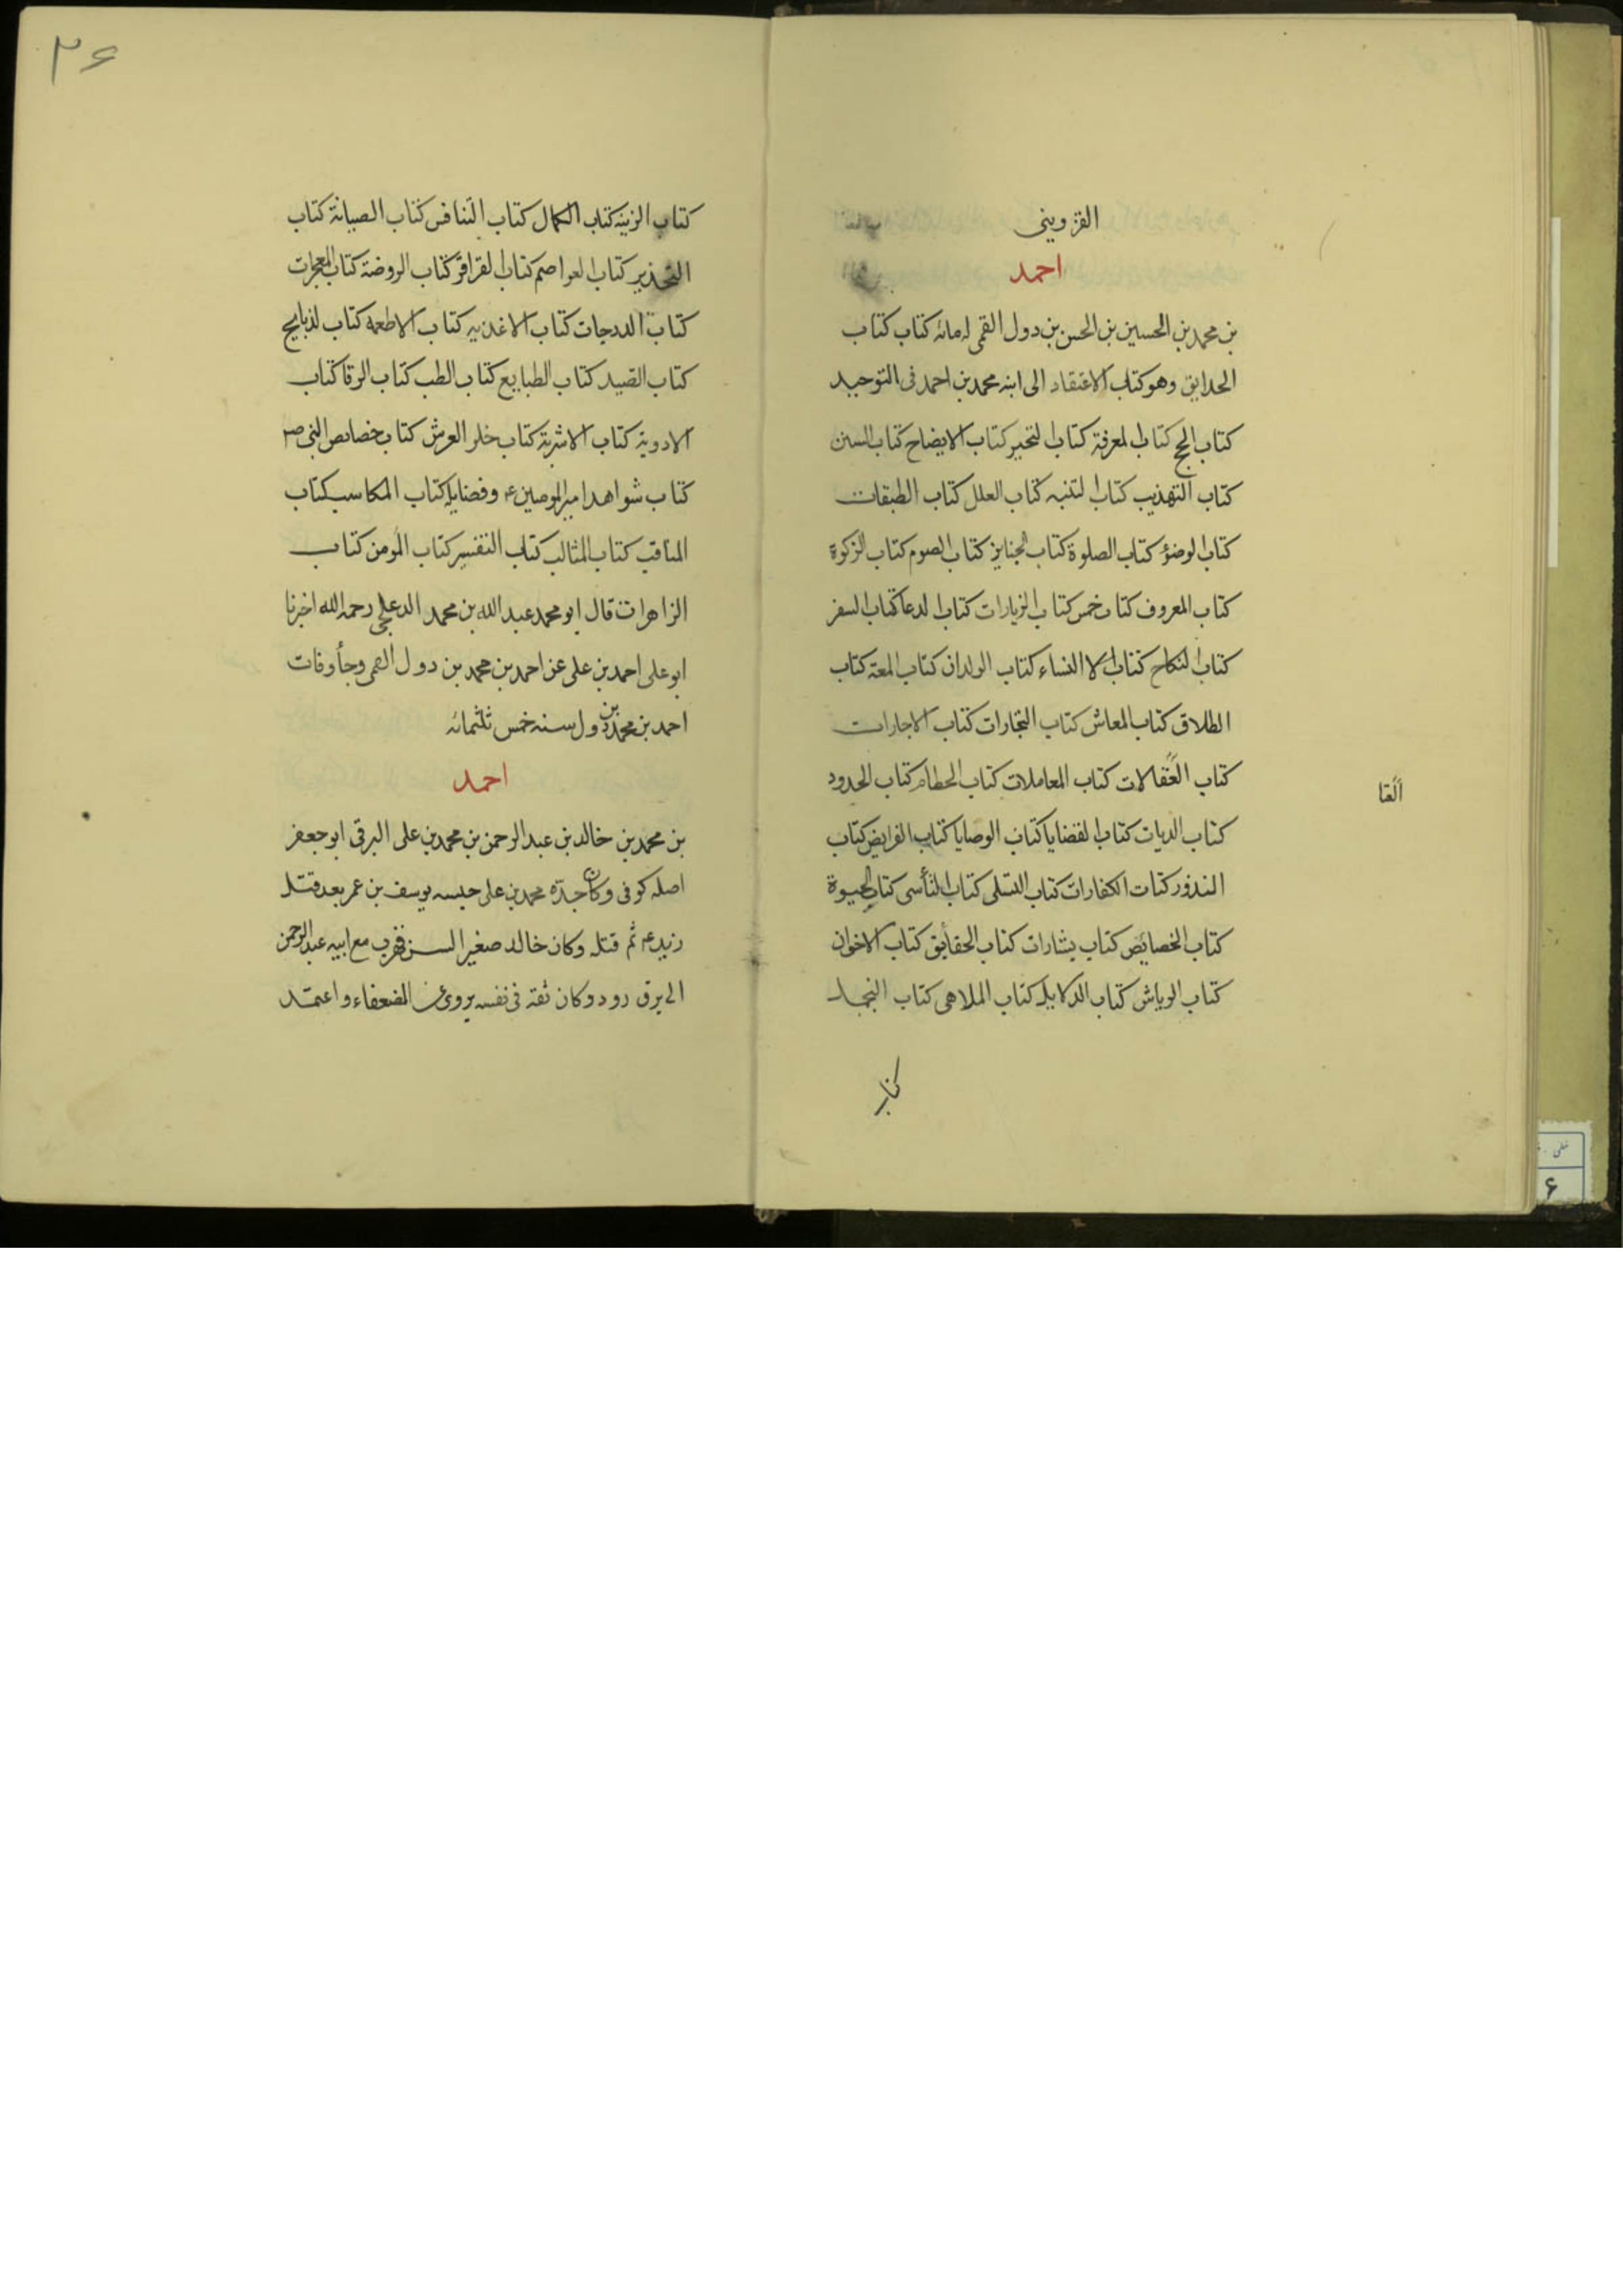 القزوينى
احمد
بن محمد بن الحسين بن الحسن بن دول القمى له مائه كتاب كتاب
الحدايق وهو كتاب الاعتقاد الى ابنه محمد بن احمد فى التوحيد
كتاب الحج كتاب المعرفة كتاب التخير كتاب الايضاح كتاب السنن
كتاب التهذيب كتاب التنبه كتاب العلل كتاب الطبقات
كتاب الوضؤ كتاب الصلوة كتاب الجنايز كتاب الصوم كتاب الزكوة
كتاب المعروف كتاب خمس كتاب الزيارات كتاب الدعا كتاب السفر
كتاب النكاح كتاب النساء كتاب الولدان كتاب المعة كتاب
الطلاق كتاب المعاش كتاب التجارات كتاب الاجارات
كتاب كتاب المعاملات كتاب الحطام كتاب الحدود
القا
كتاب الديات كتاب القضايا كتاب الوصايا كتاب الفرايض كتاب
النذور كتاب الكفارات كتاب التسلى كتاب التأسى كتاب الحيوة
كتاب الخصايص كتاب بشارات كتاب الحقايق كتاب الاخوان
كتاب الرياش كتاب الدلايل كتاب الملاهى كتاب النجمل
كتاب
۳۶
كتاب الزينه كتاب الكمال كتاب التنافس كتاب الصيانة كتاب
التحذير كتاب العواصم كتاب القراقر كتاب الروضة كتاب المعجزات
كتاب الدرجات كتاب الاغذيه كتاب الاطعمه كتاب الذبايح
كتاب الصيد كتاب الطبايع كتاب الطب كتاب الرقا كتاب
الادوية كتاب الاشربة كتاب خلر العرش كتاب خصايص النبى ص
كتاب شواهد امير المومنين ع وفضايله كتاب المكاسب كتاب
المناقب كتاب المثالب كتاب التفسير كتاب المؤمن كتاب
الزاهرات قال ابو محمد عبد الله بن محمد الدعلجى رحمه الله اخبرنا
ابو على احمد بن على عن احمد بن محمد بن دول القمى وجأ وفات
احمد بن محمد بن دول سنه خمس ثلثمائه
احمد
بن محمد بن خالد بن عبد الرحمن بن محمد بن على البرقى ابو جعفر
اصله كوفى وكان جدّه محمد بن على حبسه يوسف بن عمر بعد قتل
زيد ع ثم قتله وكان خالد صغير السن فهرب مع ابيه عبد الرحمن
الى برق رود وكان ثقة فى نفسه يروى عن الضعفاء واعتمد